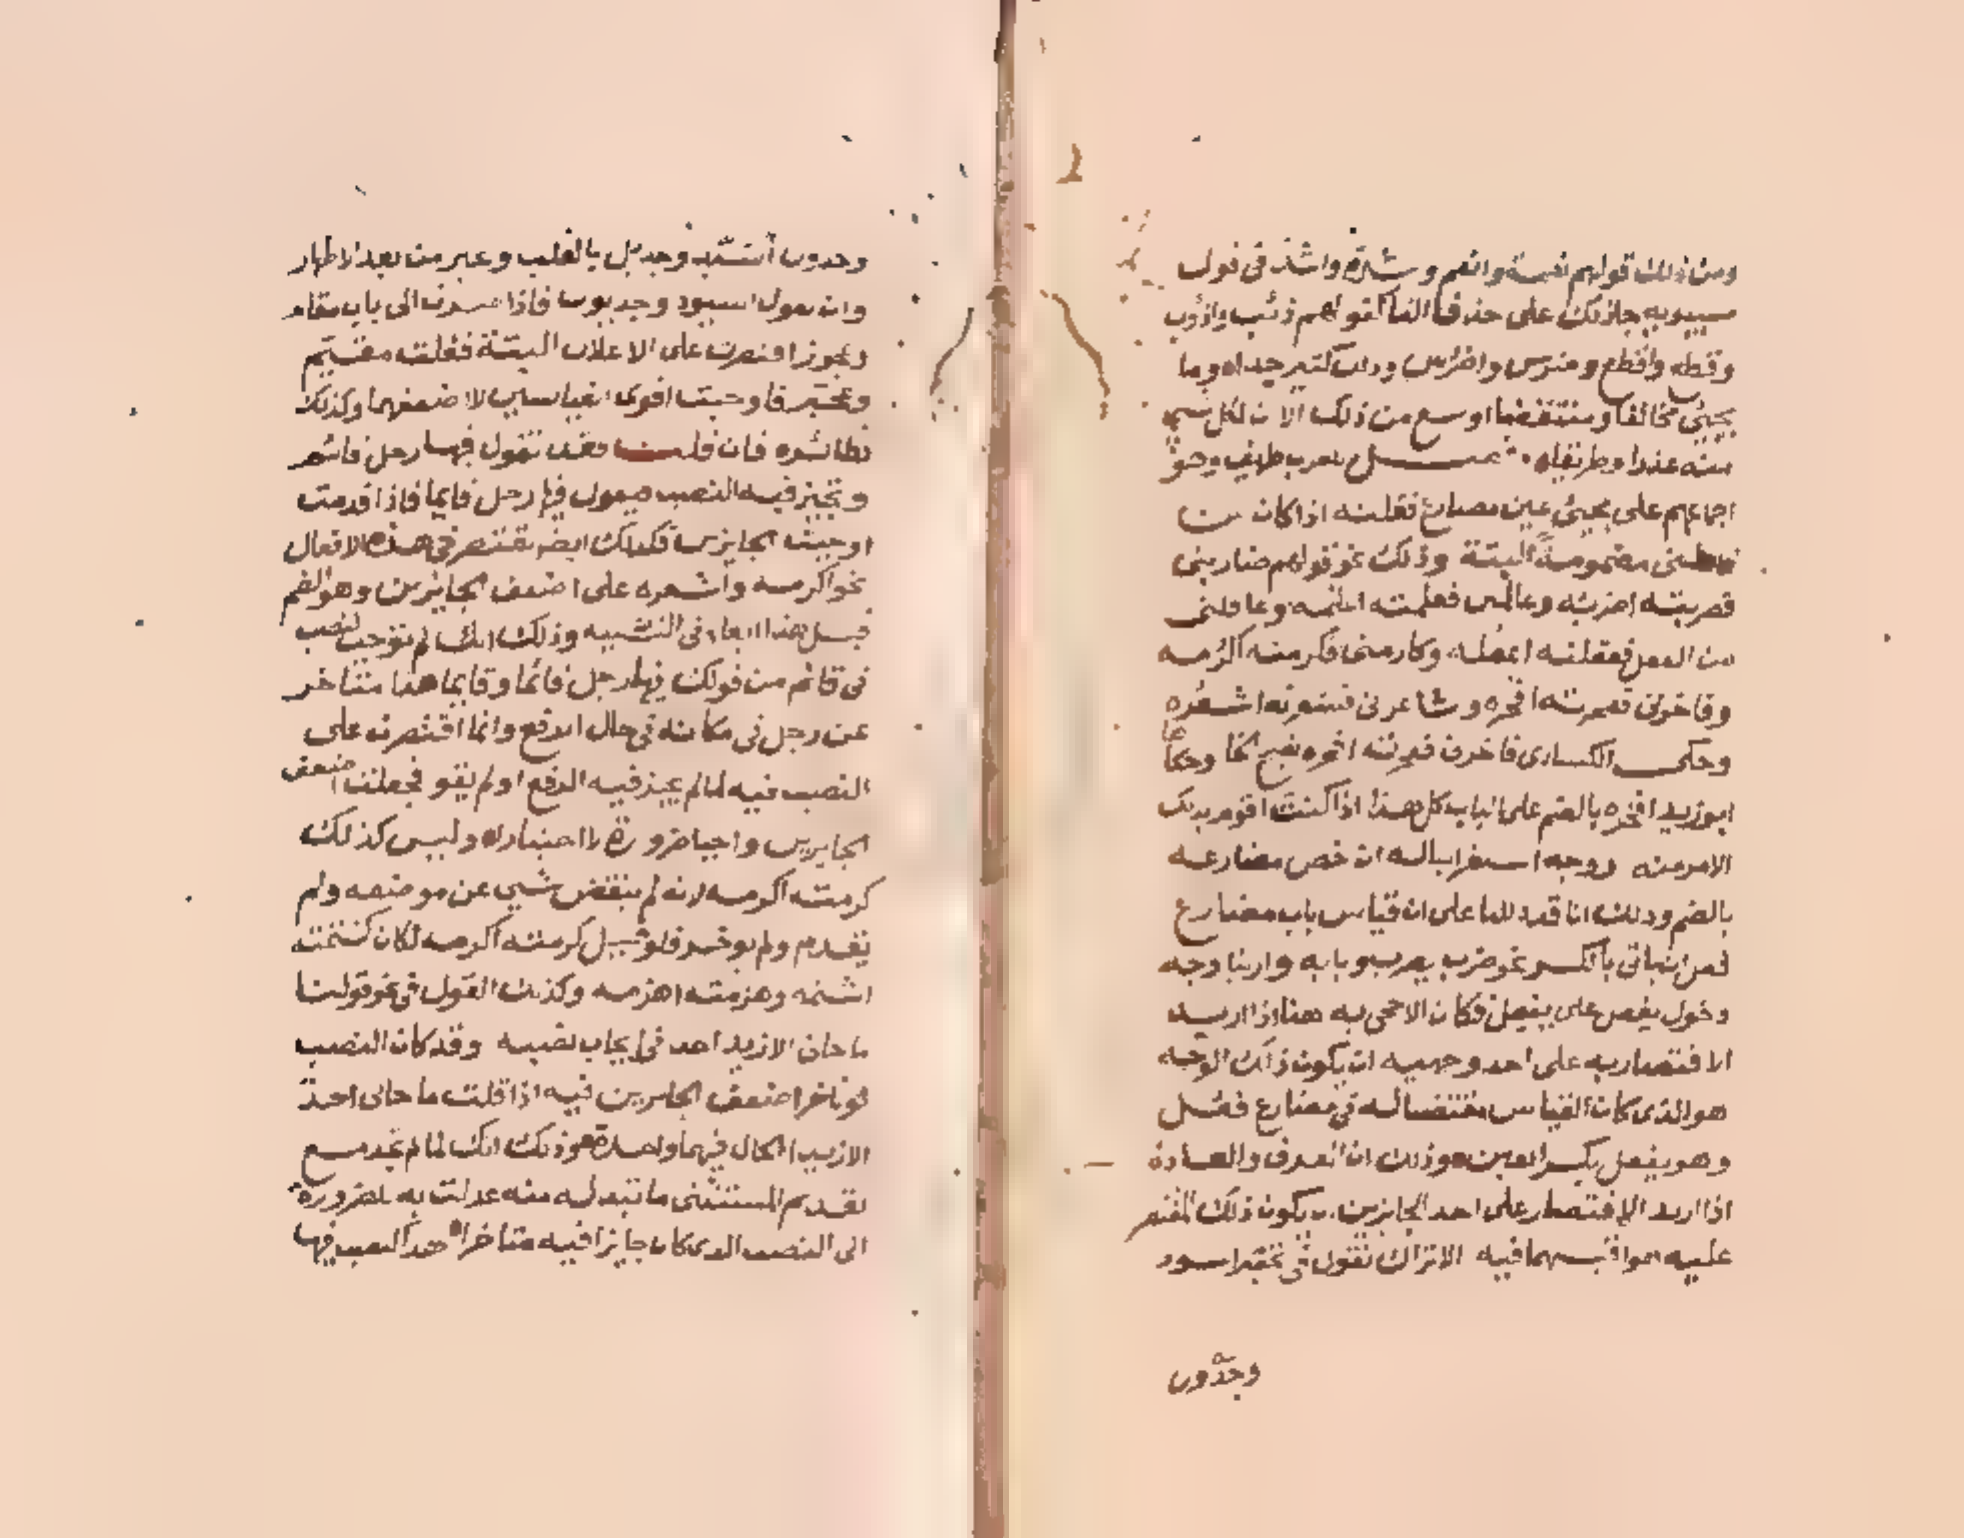 ومن ذلك قولهم نعمة وانعم وشدة واشد في قول
سيبويه جاز ذلك على حذف التا كقولهم ذئب واذؤب
وقطع واقطع وضرس واضرس وذلك كثير جدا وما
يجيئ مخالفا ومنتقضا اوسع من ذلك الا ان لكل شي
منه عذرا وطريقا وفصل للعرب طريف وهو
اجماعهم على مجيئ عين مضارع فعلته اذا كانت من
فاعلني مضمومة البتة وذلك نحو قولهم ضاربني
فضربته اضربه وعالمني فعلمته اعلمه وعاقلني
من العقل فعقلته اعقله وكارمني فكرمته اكرمه
وفاخرني ففخرته افخره وشاعرني فشعرته اشعره
وحكى الكسائي فاخرني ففخرته افخره بفتح الخا وحكاها
ابوزيد افخره بالضم على الباب كل هذا اذا كنت اقوم بذلك
الامر منه ووجه استغرابنا له ان خص مضارعه
بالضم وذلك انا قد دللنا على ان قياس باب مضارع
فعل ان ياتي بالكسر نحو ضرب يضرب وبابه وارينا وجه
دخول يفعل على يفعل فكان الاحجى به هنا اذا اريد
الاقتصار به على احد وجهيه ان يكون ذلك الوجه
هو الذي كان القياس مقتضيا له في مضارع فعل
وهو يفعل بكسر العين وذلك ان العرف والعادة
اذا اريد الاقتصار على احد الجايزين ان يكون ذلك المقتصر
عليه هو اقيسهما فيه الا تراك تقول في تحقير اسود
وجدول
وجدول أسيد وجديل بالقلب وغير من بعد الاظهار
وان تقول اسيود وجديول فاذا صرت الى باب مقام
وعجوز اقتصرت على الاعلال البتة فقلت مقيم
وعجيز فاوجبت اقوى القياسين لا ضعفهما وكذلك
نظائره فان قلت فقد تقول فيها رجل قائم
وتجيز فيه النصب فيقول فيها رجل قايما فاذا قدمت
اوجبت الجايزين فكذلك ايضا تقتصر في هذه الافعال
نحو اكرمه واشعره على اضعف الجايزين وهو الضم
قيل هذا ابعاد في التشبيه وذلك انك لم توجب النصب
في قائم من قولك فيها رجل قائما وقايما هذا متاخر
عن رجل في مكانه في حال الرفع وانما اقتصرت على
النصب فيه لما لم يجز فيه الرفع او لم يقو فجعلت اضعف
الجايزين واجبا ضرورة لا اختيارا وليس كذلك
كرمته اكرمه لانه لم ينقض شيي عن موضعه ولم
يقدم ولم يوخر فلو قيل كرمته اكرمه لكان كشتمته
اشتمه وهزمته اهزمه وكذلك القول في نحو قولنا
ما جاني الا زيدا احد في ايجاب نصبه وقد كان النصب
لو تاخر اضعف الجايزين فيه اذا قلت ما جاني احد
الا زيدا الحال فيهما واحدة وذلك انك لما لم تجد مع
تقديم المستثنى ما تبدله منه عدلت به للضرورة
الى النصب الذي كان جايزا فيه متاخرا هذا كنصب فيها